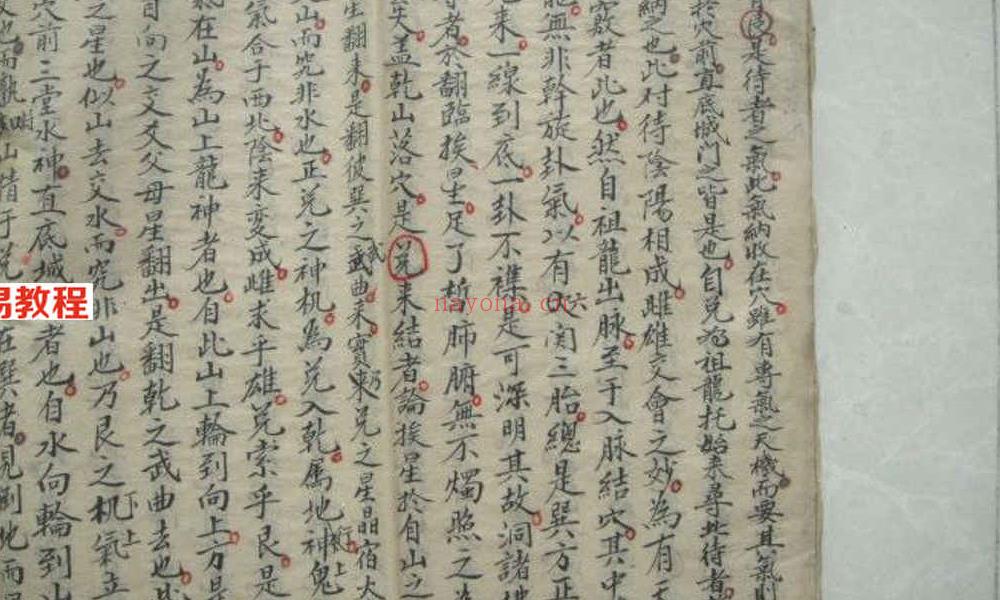 是待者之氣此氣納收在穴雖有專氣之天機而要其氣則
於穴前直底城門之皆是也自兌為祖龍托始來尋此待者
納之也此対待陰陽相成雌雄交會之妙為有
竅者此也然自祖龍出脉至于入脉結穴其中
能無非斡旋卦氣以有六関三胎總是巽方正
起來一線到底一卦不襍是可深明其故洞諸
者於翻臨挨星足了析肺腑無不燭照之
矣蓋乾山落穴是兌來結者論挨星於自山之
生翻來是翻彼巽之武曲來實乃東兌之星晶宿大
山而究非水也正兌之神机為兌入乾属地神鬼
氣合于西北陰来变成雌求乎雄兌索乎艮是
氣在山為山上龍神者也自此山上輪到向上方是
自向之文爻父母星翻出是翻乾之武曲去也
之星也似山去交水而究非山也乃艮之机氣立
穴前三堂水神直底城者也自水向輪到山
山情于兌在巽者見刑地而
易教程
nayona.cn